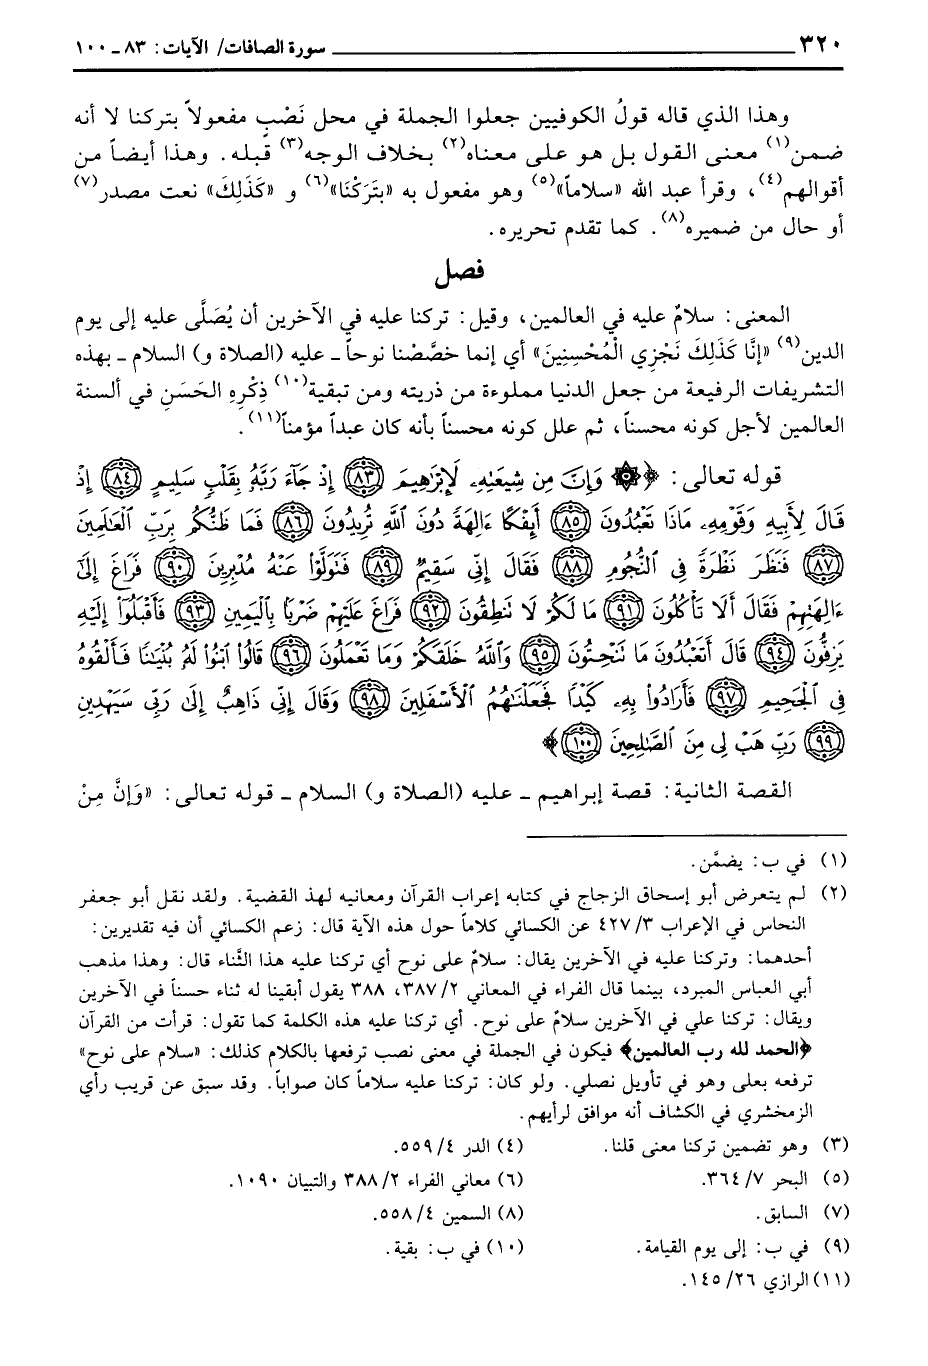 ٣٢٠ سورة الصافات/ الآيات: ٨٣ ـ ١٠٠
وهذا الذي قاله قولُ الكوفيين جعلوا الجملة في محل نَصْبٍ مفعولاً بتركنا لا أنه
ضمن(١) معنى القول بل هو على معناه(٢) بخلاف الوجه(٣) قبله. وهذا أيضاً من
أقوالهم(٤)، وقرأ عبد الله «سلاماً»(٥) وهو مفعول به «بتَرَكْنَا»(٦) و «كَذَلِكَ» نعت مصدر(٧)
أو حال من ضميره(٨). كما تقدم تحريره.
فصل
المعنى: سلامٌ عليه في العالمين، وقيل: تركنا عليه في الآخرين أن يُصَلَّى عليه إلى يوم
الدين(٩) «إنَّا كَذَلِكَ نَجْزِي الْمُحْسِنِينَ» أي إنما خصَّصْنا نوحاً ـ عليه (الصلاة و) السلام ـ بهذه
التشريفات الرفيعة من جعل الدنيا مملوءة من ذريته ومن تبقية(١٠) ذِكْرِهِ الحَسَنِ في ألسنة
العالمين لأجل كونه محسناً، ثم علل كونه محسناً بأنه كان عبداً مؤمناً(١١).
قوله تعالى: ﴿۞ وَإِنَّ مِن شِيعَتِهِۦ لَإِبْرَٰهِيمَ ﴿٨٣﴾ إِذْ جَآءَ رَبَّهُۥ بِقَلْبٍ سَلِيمٍ ﴿٨٤﴾ إِذْ
قَالَ لِأَبِيهِ وَقَوْمِهِۦ مَاذَا تَعْبُدُونَ ﴿٨٥﴾ أَئِفْكًا ءَالِهَةً دُونَ ٱللَّهِ تُرِيدُونَ ﴿٨٦﴾ فَمَا ظَنُّكُم بِرَبِّ ٱلْعَٰلَمِينَ
﴿٨٧﴾ فَنَظَرَ نَظْرَةً فِى ٱلنُّجُومِ ﴿٨٨﴾ فَقَالَ إِنِّى سَقِيمٌ ﴿٨٩﴾ فَتَوَلَّوْا۟ عَنْهُ مُدْبِرِينَ ﴿٩٠﴾ فَرَاغَ إِلَىٰٓ
ءَالِهَتِهِمْ فَقَالَ أَلَا تَأْكُلُونَ ﴿٩١﴾ مَا لَكُمْ لَا تَنطِقُونَ ﴿٩٢﴾ فَرَاغَ عَلَيْهِمْ ضَرْبًۢا بِٱلْيَمِينِ ﴿٩٣﴾ فَأَقْبَلُوٓا۟ إِلَيْهِ
يَزِفُّونَ ﴿٩٤﴾ قَالَ أَتَعْبُدُونَ مَا تَنْحِتُونَ ﴿٩٥﴾ وَٱللَّهُ خَلَقَكُمْ وَمَا تَعْمَلُونَ ﴿٩٦﴾ قَالُوا۟ ٱبْنُوا۟ لَهُۥ بُنْيَٰنًا فَأَلْقُوهُ
فِى ٱلْجَحِيمِ ﴿٩٧﴾ فَأَرَادُوا۟ بِهِۦ كَيْدًا فَجَعَلْنَٰهُمُ ٱلْأَسْفَلِينَ ﴿٩٨﴾ وَقَالَ إِنِّى ذَاهِبٌ إِلَىٰ رَبِّى سَيَهْدِينِ
﴿٩٩﴾ رَبِّ هَبْ لِى مِنَ ٱلصَّٰلِحِينَ ﴿١٠٠﴾﴾
القصة الثانية: قصة إبراهيم ـ عليه (الصلاة و) السلام ـ قوله تعالى: «وَإنَّ مِنْ
(١) في ب: يضمَّن.
(٢) لم يتعرض أبو إسحاق الزجاج في كتابه إعراب القرآن ومعانيه لهذ القضية. ولقد نقل أبو جعفر
النحاس في الإعراب ٤٢٧/٣ عن الكسائي كلاماً حول هذه الآية قال: زعم الكسائي أن فيه تقديرين:
أحدهما: وتركنا عليه في الآخرين يقال: سلامٌ على نوح أي تركنا عليه هذا الثَّناء قال: وهذا مذهب
أبي العباس المبرد، بينما قال الفراء في المعاني ٣٨٧/٢، ٣٨٨ يقول أبقينا له ثناء حسناً في الآخرين
ويقال: تركنا علي في الآخرين سلامٌ على نوح. أي تركنا عليه هذه الكلمة كما تقول: قرأت من القرآن
﴿الحمد لله رب العالمين﴾ فيكون في الجملة في معنى نصب ترفعها بالكلام كذلك: «سلام على نوح»
ترفعه بعلى وهو في تأويل نصلي. ولو كان: تركنا عليه سلاماً كان صواباً. وقد سبق عن قريب رأي
الزمخشري في الكشاف أنه موافق لرأيهم.
(٣) وهو تضمين تركنا معنى قلنا. (٤) الدر ٥٥٩/٤.
(٥) البحر ٣٦٤/٧. (٦) معاني الفراء ٣٨٨/٢ والتبيان ١٠٩٠.
(٧) السابق. (٨) السمين ٥٥٨/٤.
(٩) في ب: إلى يوم القيامة. (١٠) في ب: بقية.
(١١) الرازي ١٤٥/٢٦.